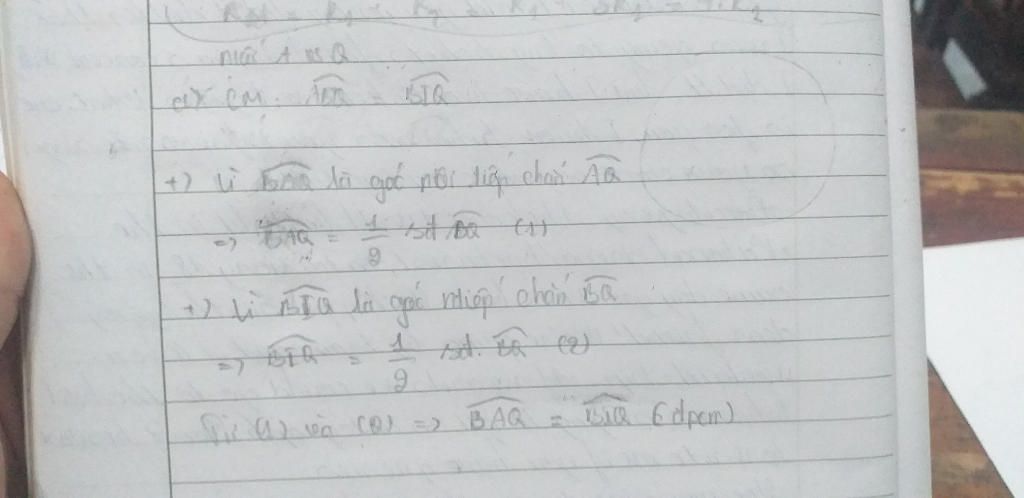 a) CM: = BIQ
+) Vì BAQ là góc nội tiếp chắn AQ
=> BAQ = 1/2 sđ BQ (1)
+) Vì BIQ là góc ntiếp chắn BQ
=> BIQ = 1/2 sđ. BQ (2)
Từ (1) và (2) => BAQ = BIQ (đpcm)